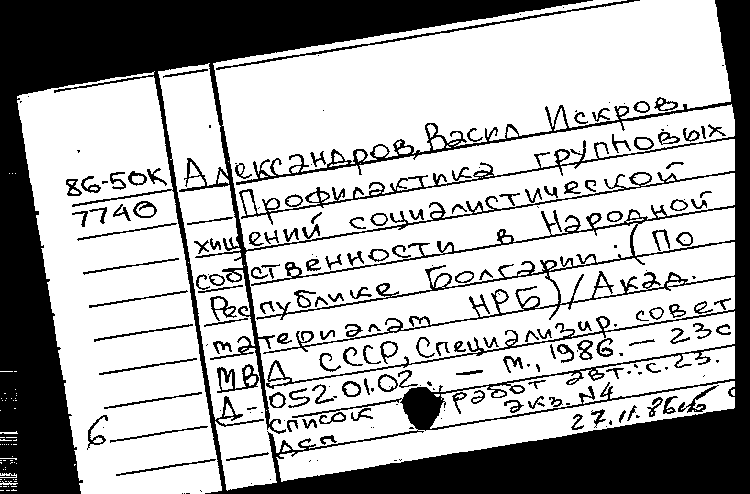 Александров, Васил Искров.
86-50К
7740
Профилактика групповых
хищений социалистической
собственности в Народной
Республике Болгарии : (По
материалам НРБ) / Акад.
МВД СССР, Специализир. совет
Д-052.01.02. — М., 1986. — 23с
список работ авт.: с.23.
ДСП экз. N4
27.11.86
6